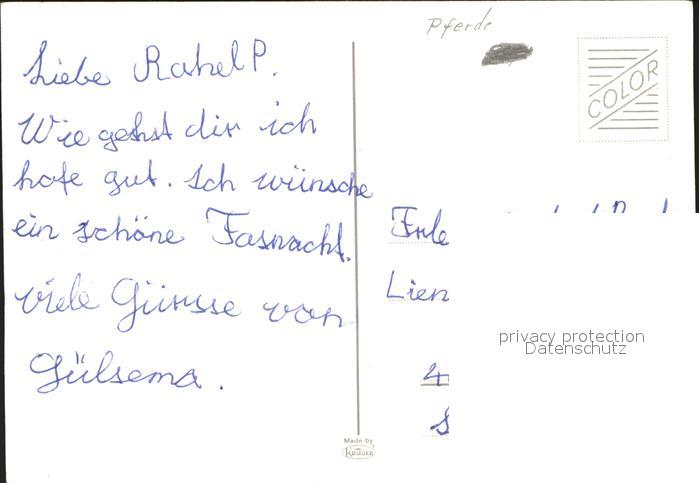 Pferde
COLOR
Liebe Rahel P.
Wie gehst dir ich
hofe gut. Ich wünsche
ein schöne Fasnacht.
viele Gürsse von
Gülsema.
Frle
Lien
4
S
privacy protection
Datenschutz
Made by
KRÜGER